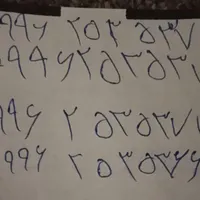 ۹۹۶ ۲۵۳ ۵۳۷
۹۹۶۲۵۳۵۳
۹۹۶ ۲ ۵۳۵۳۷
۹۹۶ ۲ ۵۳۵۳۷۶